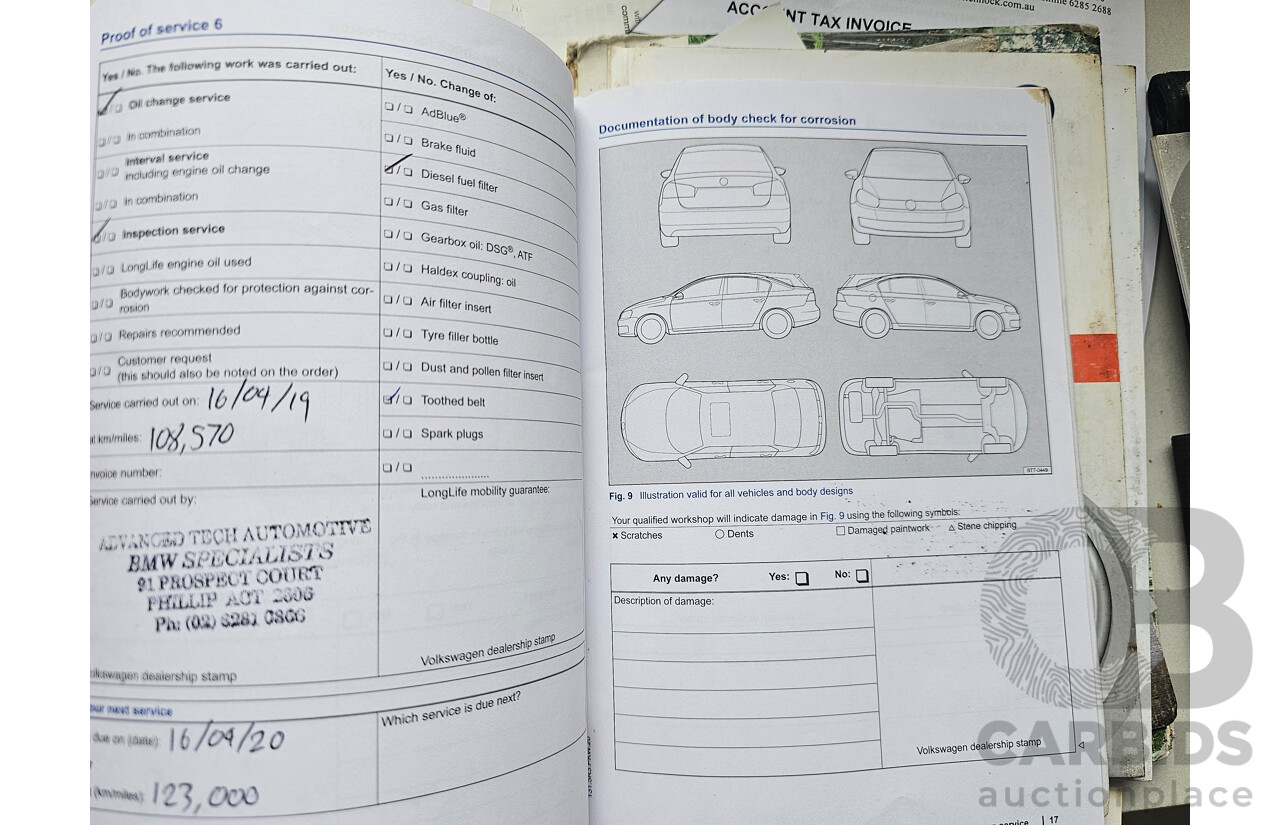 nnock.com.au
6285 2688
ACC NT TAX INVOICE
Proof of service 6
Yes / No. The following work was carried out:
☐/☐ Oil change service
☐/☐ In combination
☐/☐ Interval service
including engine oil change
☐/☐ In combination
☐/☐ Inspection service
☐/☐ LongLife engine oil used
☐/☐ Bodywork checked for protection against cor-
rosion
☐/☐ Repairs recommended
☐/☐ Customer request
(this should also be noted on the order)
Service carried out on: 16/04/19
at km/miles: 108,570
nvoice number:
Service carried out by:
ADVANCED TECH AUTOMOTIVE
BMW SPECIALISTS
91 PROSPECT COURT
PHILLIP ACT 2606
Ph: (02) 6281 0866
lkswagen dealership stamp
our next service
due on (date): 16/04/20
(km/miles): 123,000
Yes / No. Change of:
☐/☐ AdBlue®
☐/☐ Brake fluid
☐/☐ Diesel fuel filter
☐/☐ Gas filter
☐/☐ Gearbox oil: DSG®, ATF
☐/☐ Haldex coupling: oil
☐/☐ Air filter insert
☐/☐ Tyre filler bottle
☐/☐ Dust and pollen filter insert
☐/☐ Toothed belt
☐/☐ Spark plugs
☐/☐ ....................
LongLife mobility guarantee:
Volkswagen dealership stamp
Which service is due next?
Documentation of body check for corrosion
BT7-0449
Fig. 9 Illustration valid for all vehicles and body designs
Your qualified workshop will indicate damage in Fig. 9 using the following symbols:
× Scratches ○ Dents □ Damaged paintwork △ Stone chipping
Any damage? Yes: ☐ No: ☐
Description of damage:
Volkswagen dealership stamp
service | 17
CARBIDS
auctionplace